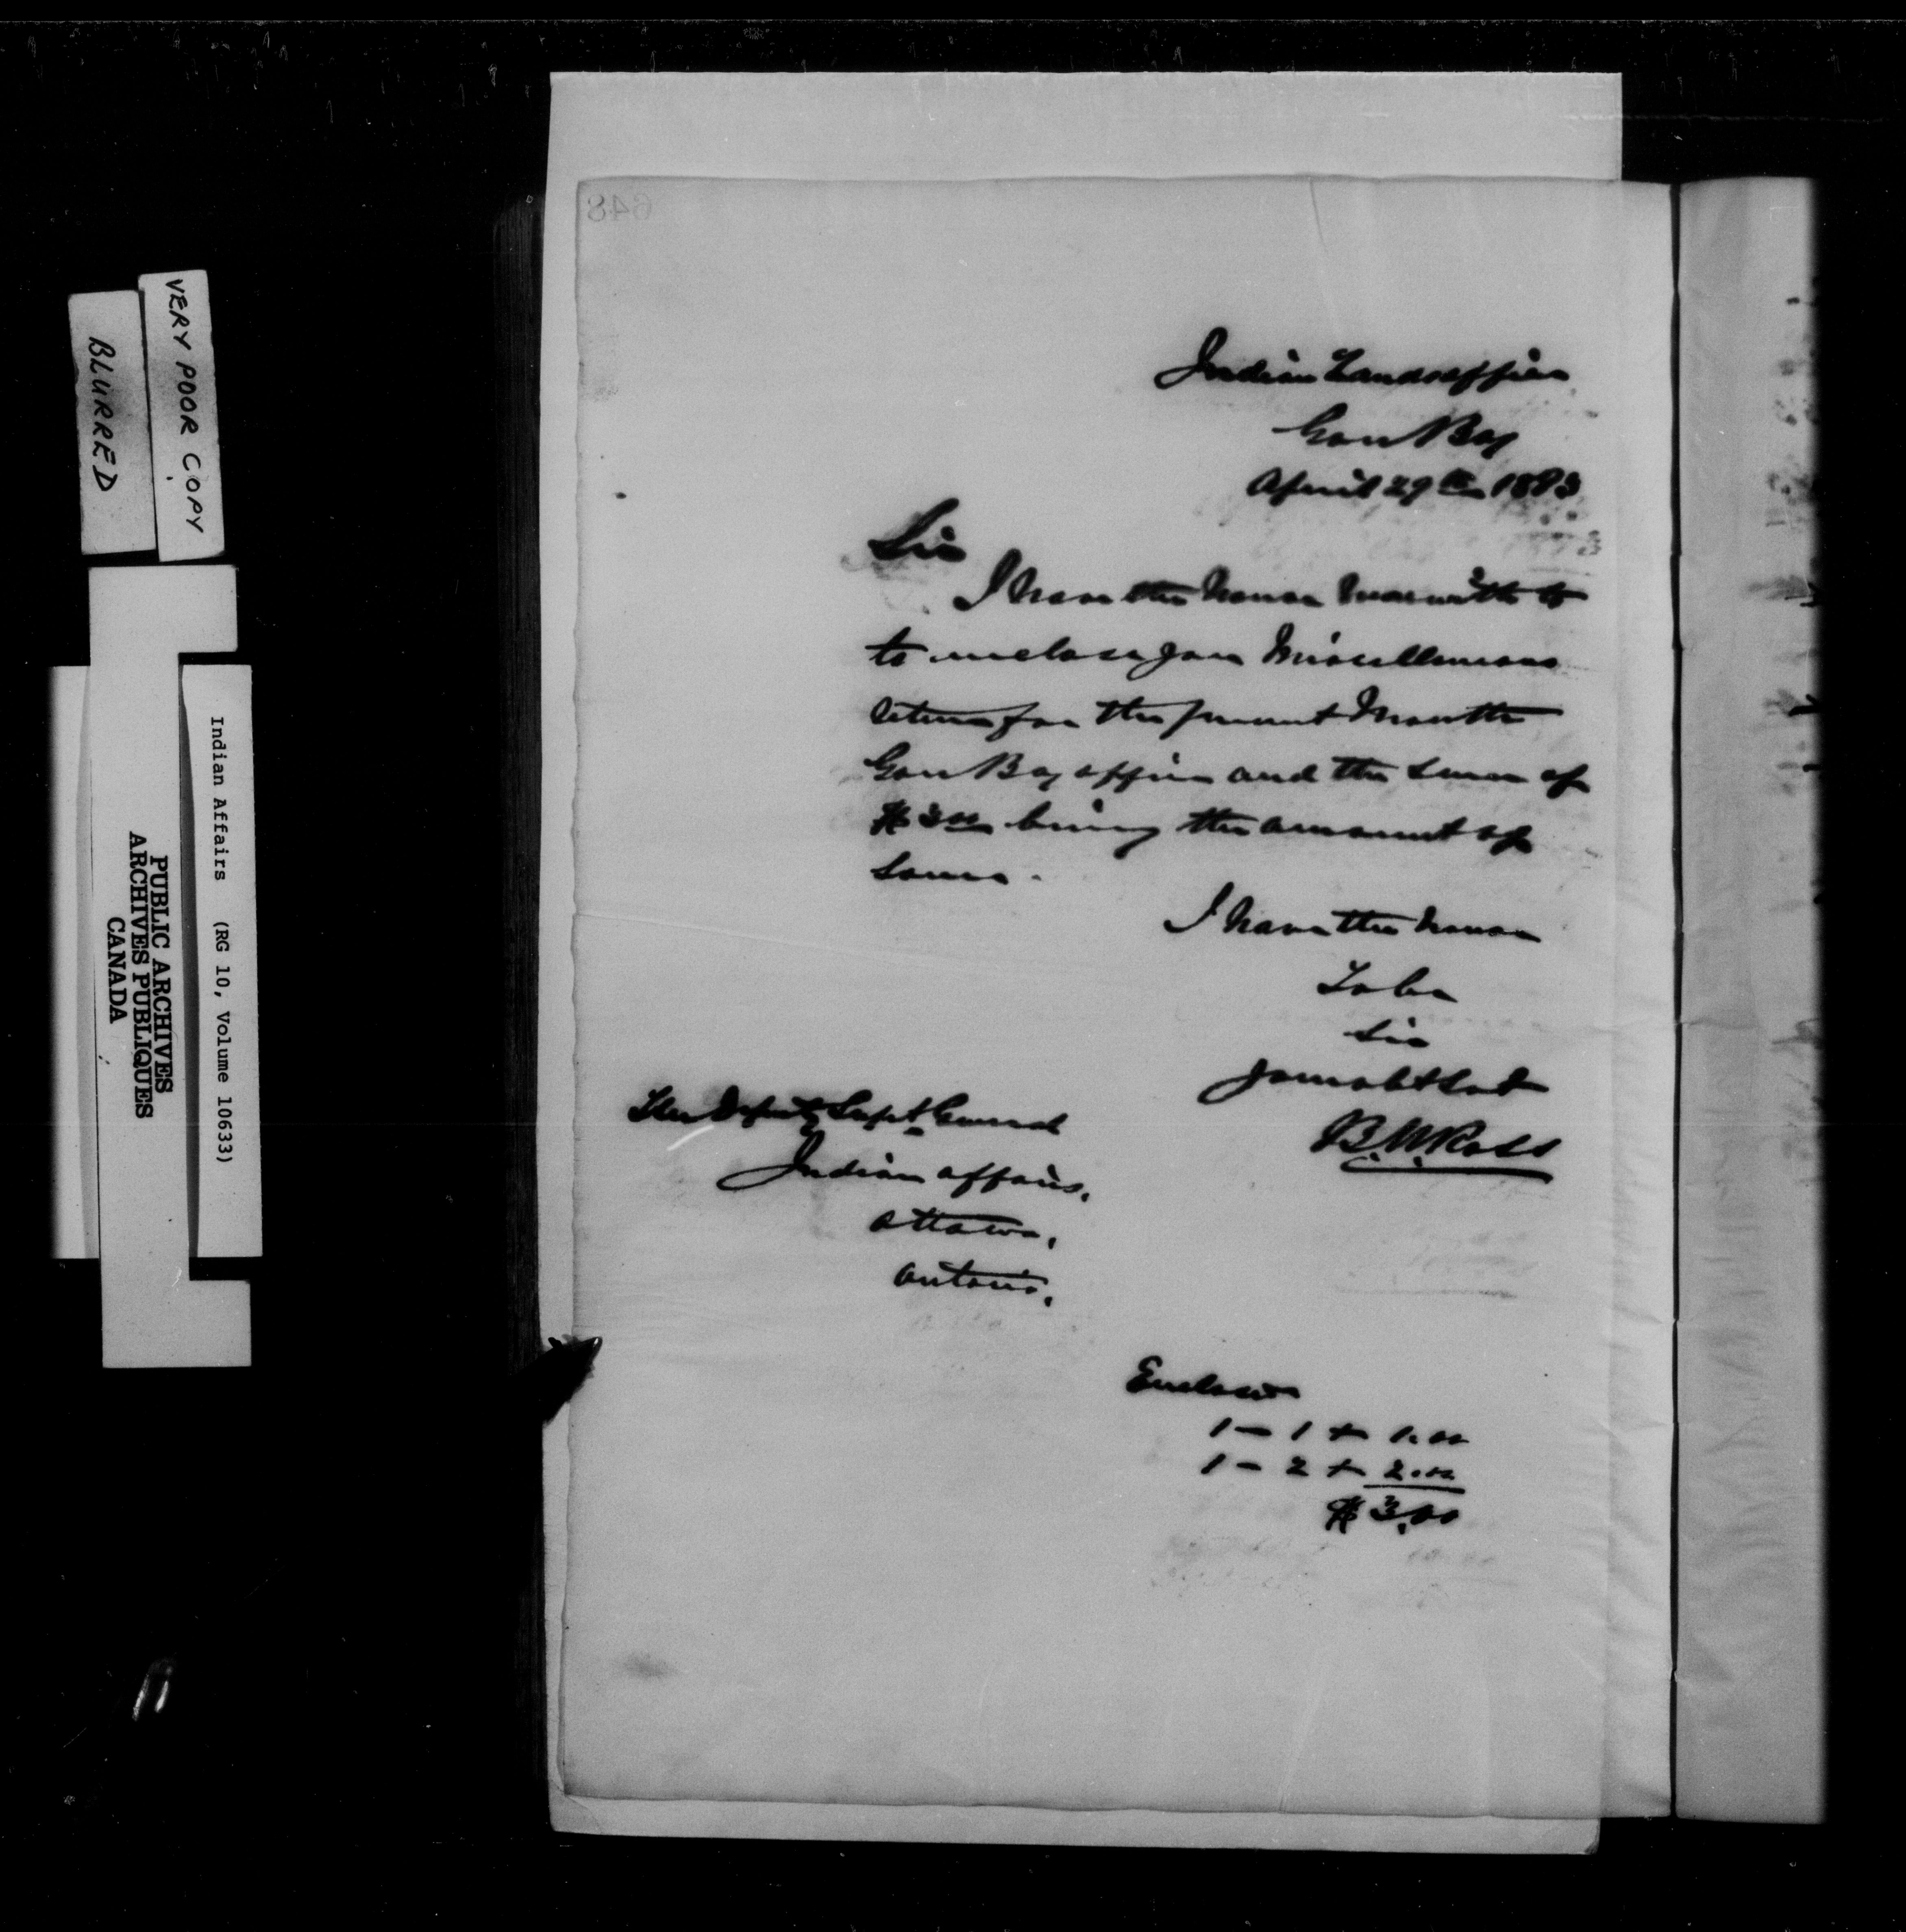 648
Indian Lands office
Gore Bay
April 29th 1893
Sir
I have the honor herewith to
to enclose you Miscellaneous
return for the present Month
Gore Bay office and the sum of
$3.00 being the amount of
same.
I have the honor
To be
Sir
your obt Svt
B. W. Ross
The Deputy Supt General
Indian affairs.
Ottawa.
Ontario.
Enclosed
1 - 1 + 1.00
1 - 2 + 2.00
$3.00
VERY POOR COPY
BLURRED
Indian Affairs (RG 10, Volume 10633)
PUBLIC ARCHIVES
ARCHIVES PUBLIQUES
CANADA